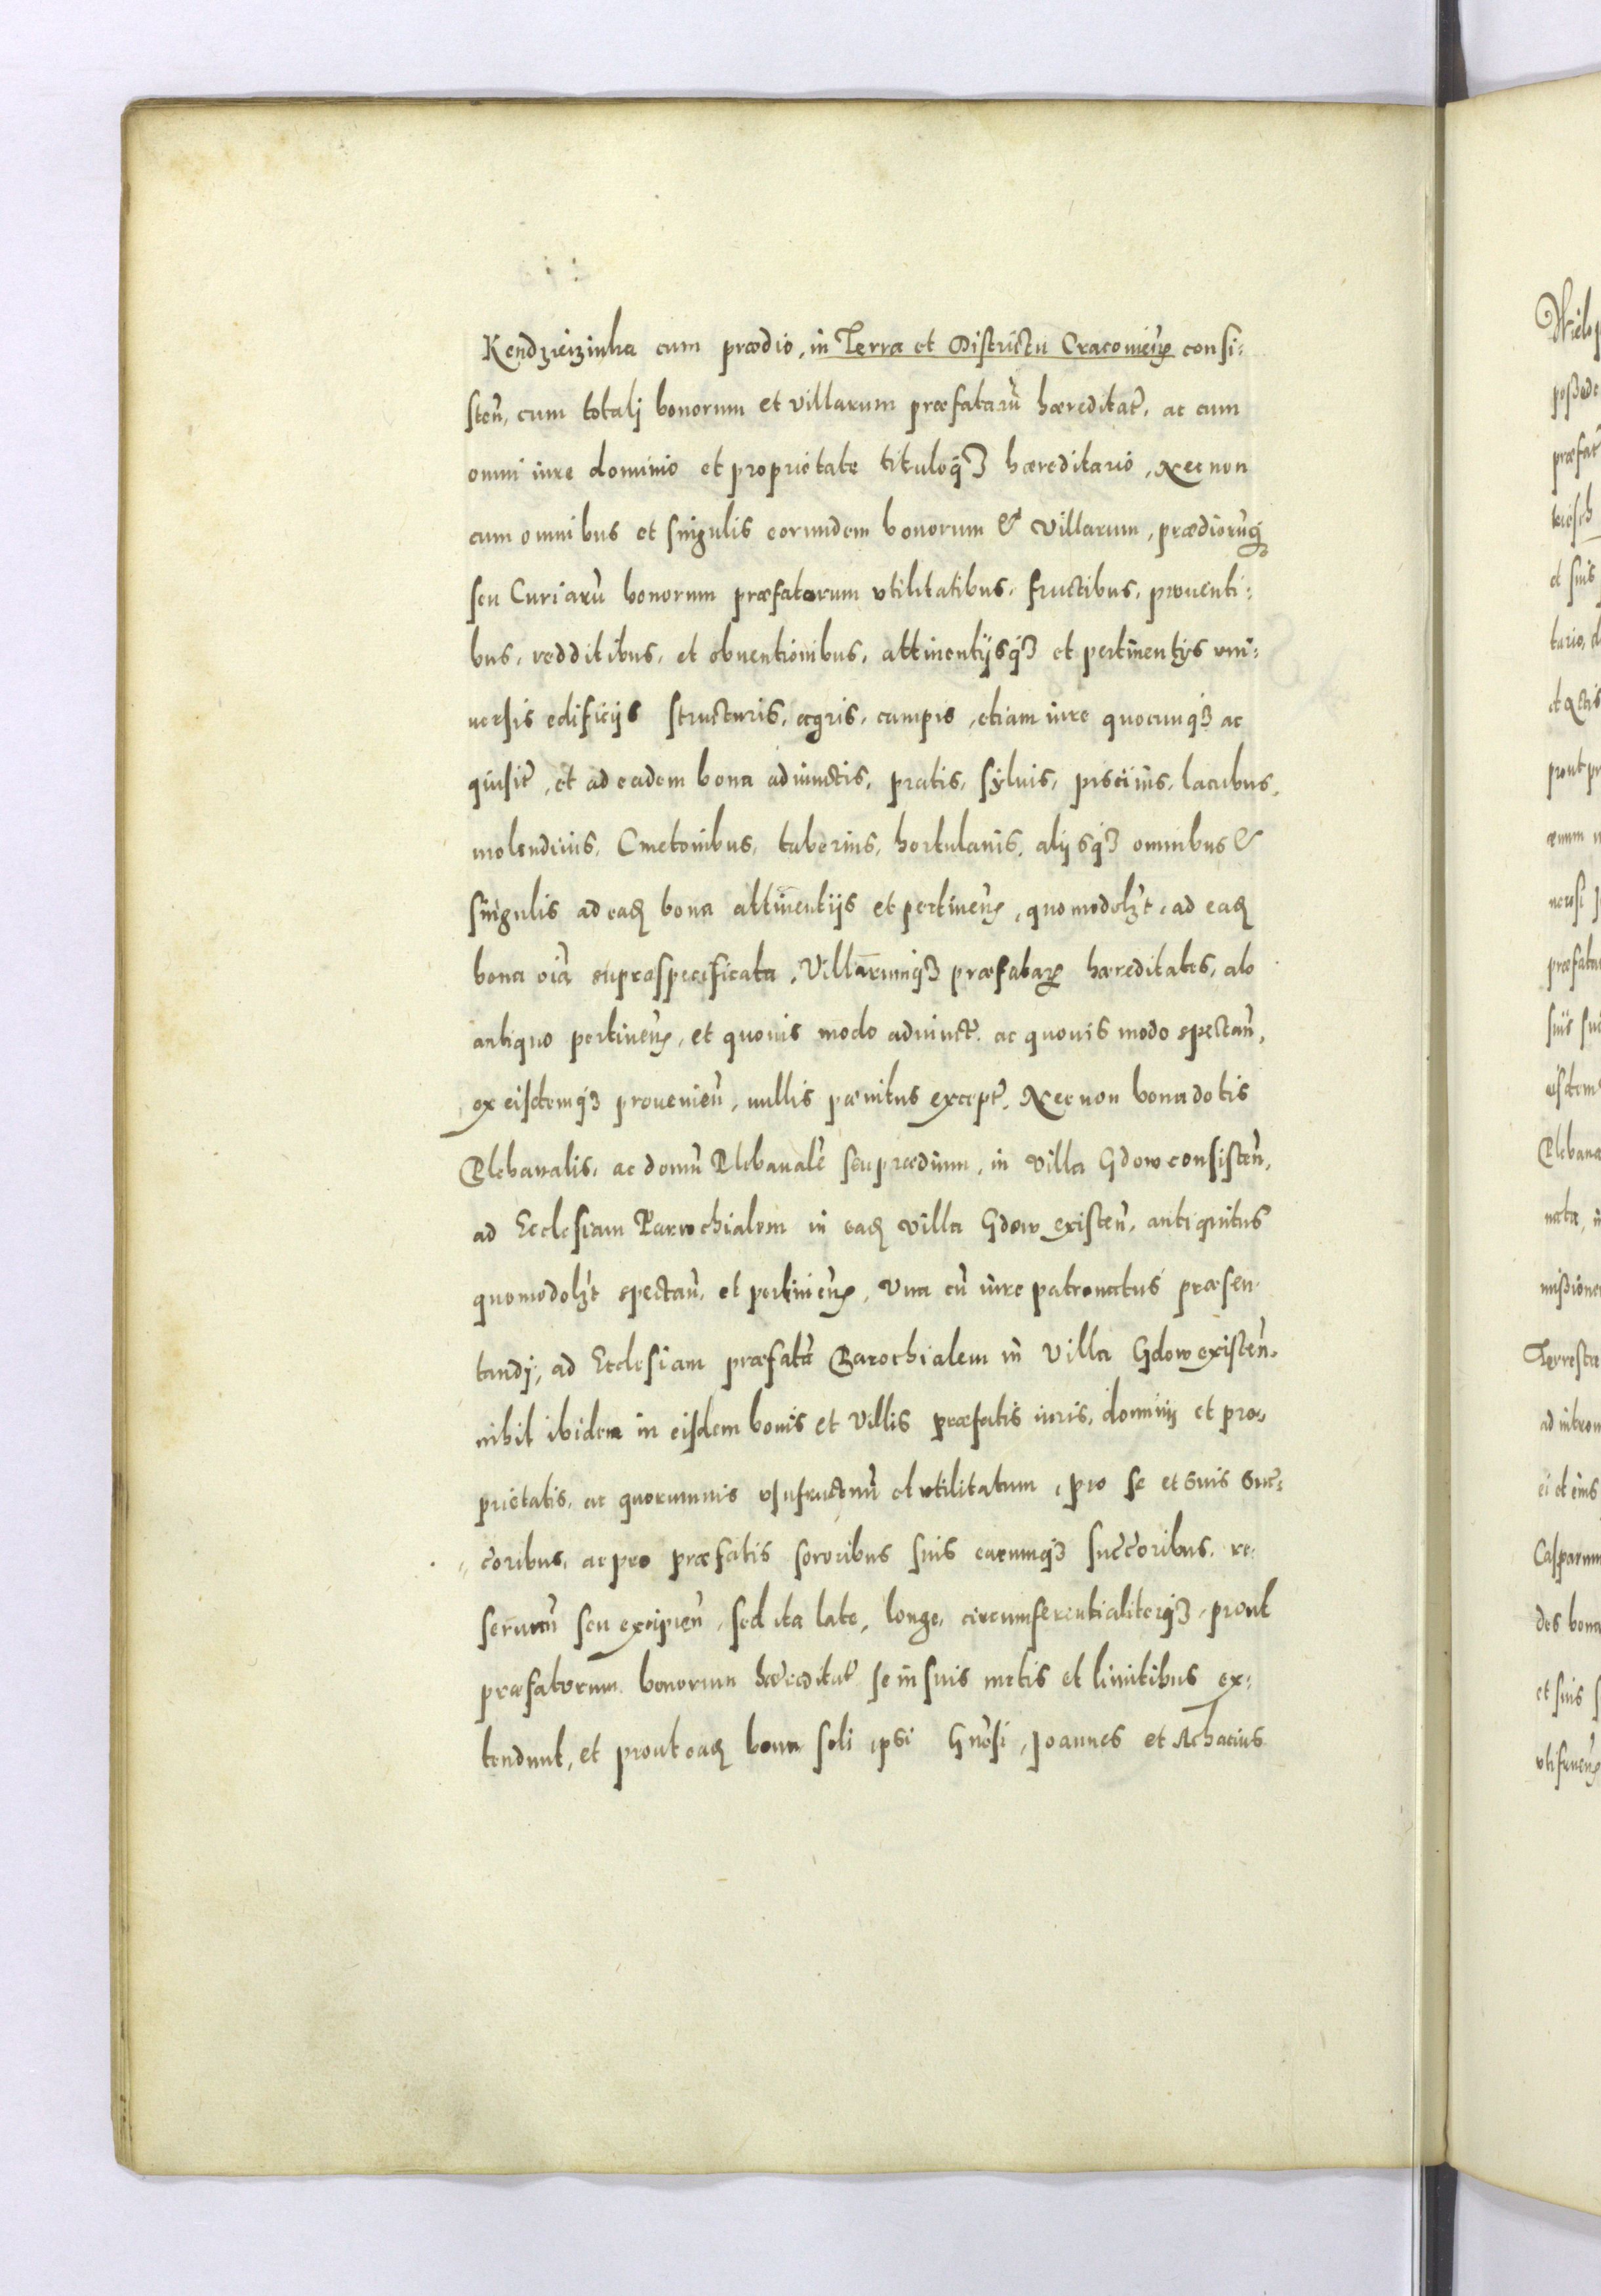 Kendzierzinka cum prædio, in Terra et Districtu Cracovieñ consi:
steñ, cum totalj bonorum et villarum præfatarũ hæreditat̃, ac cum
omni iure dominio et proprietate tituloq3 hæreditario, Nec non
cum omnibus et singulis eorundem bonorum & villarum, prædiorũq
seu Curiarũ bonorum præfatorum vtilitatibus, fructibus, prouenti:
bus, redditibus, et obuentionibus, attinentijsq3 et pertinentijs vni:
uersis edificijs structuris, agris, campis, etiam iure quocunq3 ac
quisit̃, et ad eadem bona adiunctis, pratis, syluis, piscinis, lacubus,
molendinis, Cmetonibus, tabernis, hortulanis, alijsq3 omnibus &
singulis ad eaq bona attinentijs et pertineñ, quomodolz̃t, ad eaq
bona oĩa supraspecificata, Villarumq3 præfatar̃ hæreditates, ab
antiquo pertineñ, et quouis modo adiunct̃ ac quouis modo spectañ,
ex eisdemq3 prouenieñ, nullis pænitus except̃. Nec non bona dotis
Plebanalis, ac domũ Plebanalẽ seu prædium, in villa Gdow consisteñ,
ad Ecclesiam Parrochialem in eaq villa Gdow existeñ, antiquitus
quomodolz̃t spectañ, et pertineñ, Vna cũ iure patronatus præsen
tandj, ad Ecclesiam præfatã Parochialem in Villa Gdow existeñ.
nihil ibidem in eisdem bonis et Villis præfatis iuris, dominij et pro,
prietatis, ac quorumuis vsufructuũ et vtilitatum, pro se et suis Suc̃:
"c̃oribus, ac pro præfatis sororibus suis earumq3 succ̃oribus, re
seruañ seu excipieñ, sed ita late, longe, circumferentialiterq3, prout
præfatorum bonorum hæreditat̃ se in suis metis et limitibus ex:
tendunt, et prout eaq bona soli ipsi Gñosi, Joannes et Achacius